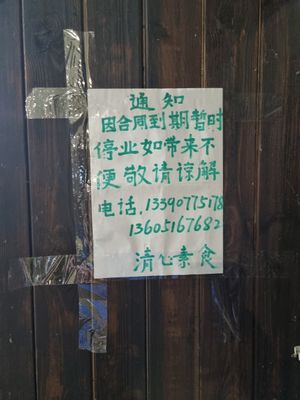 通知
因合同到期暂时
停业如带来不
便敬请谅解
电话.13390775178
13605167682
清心素食